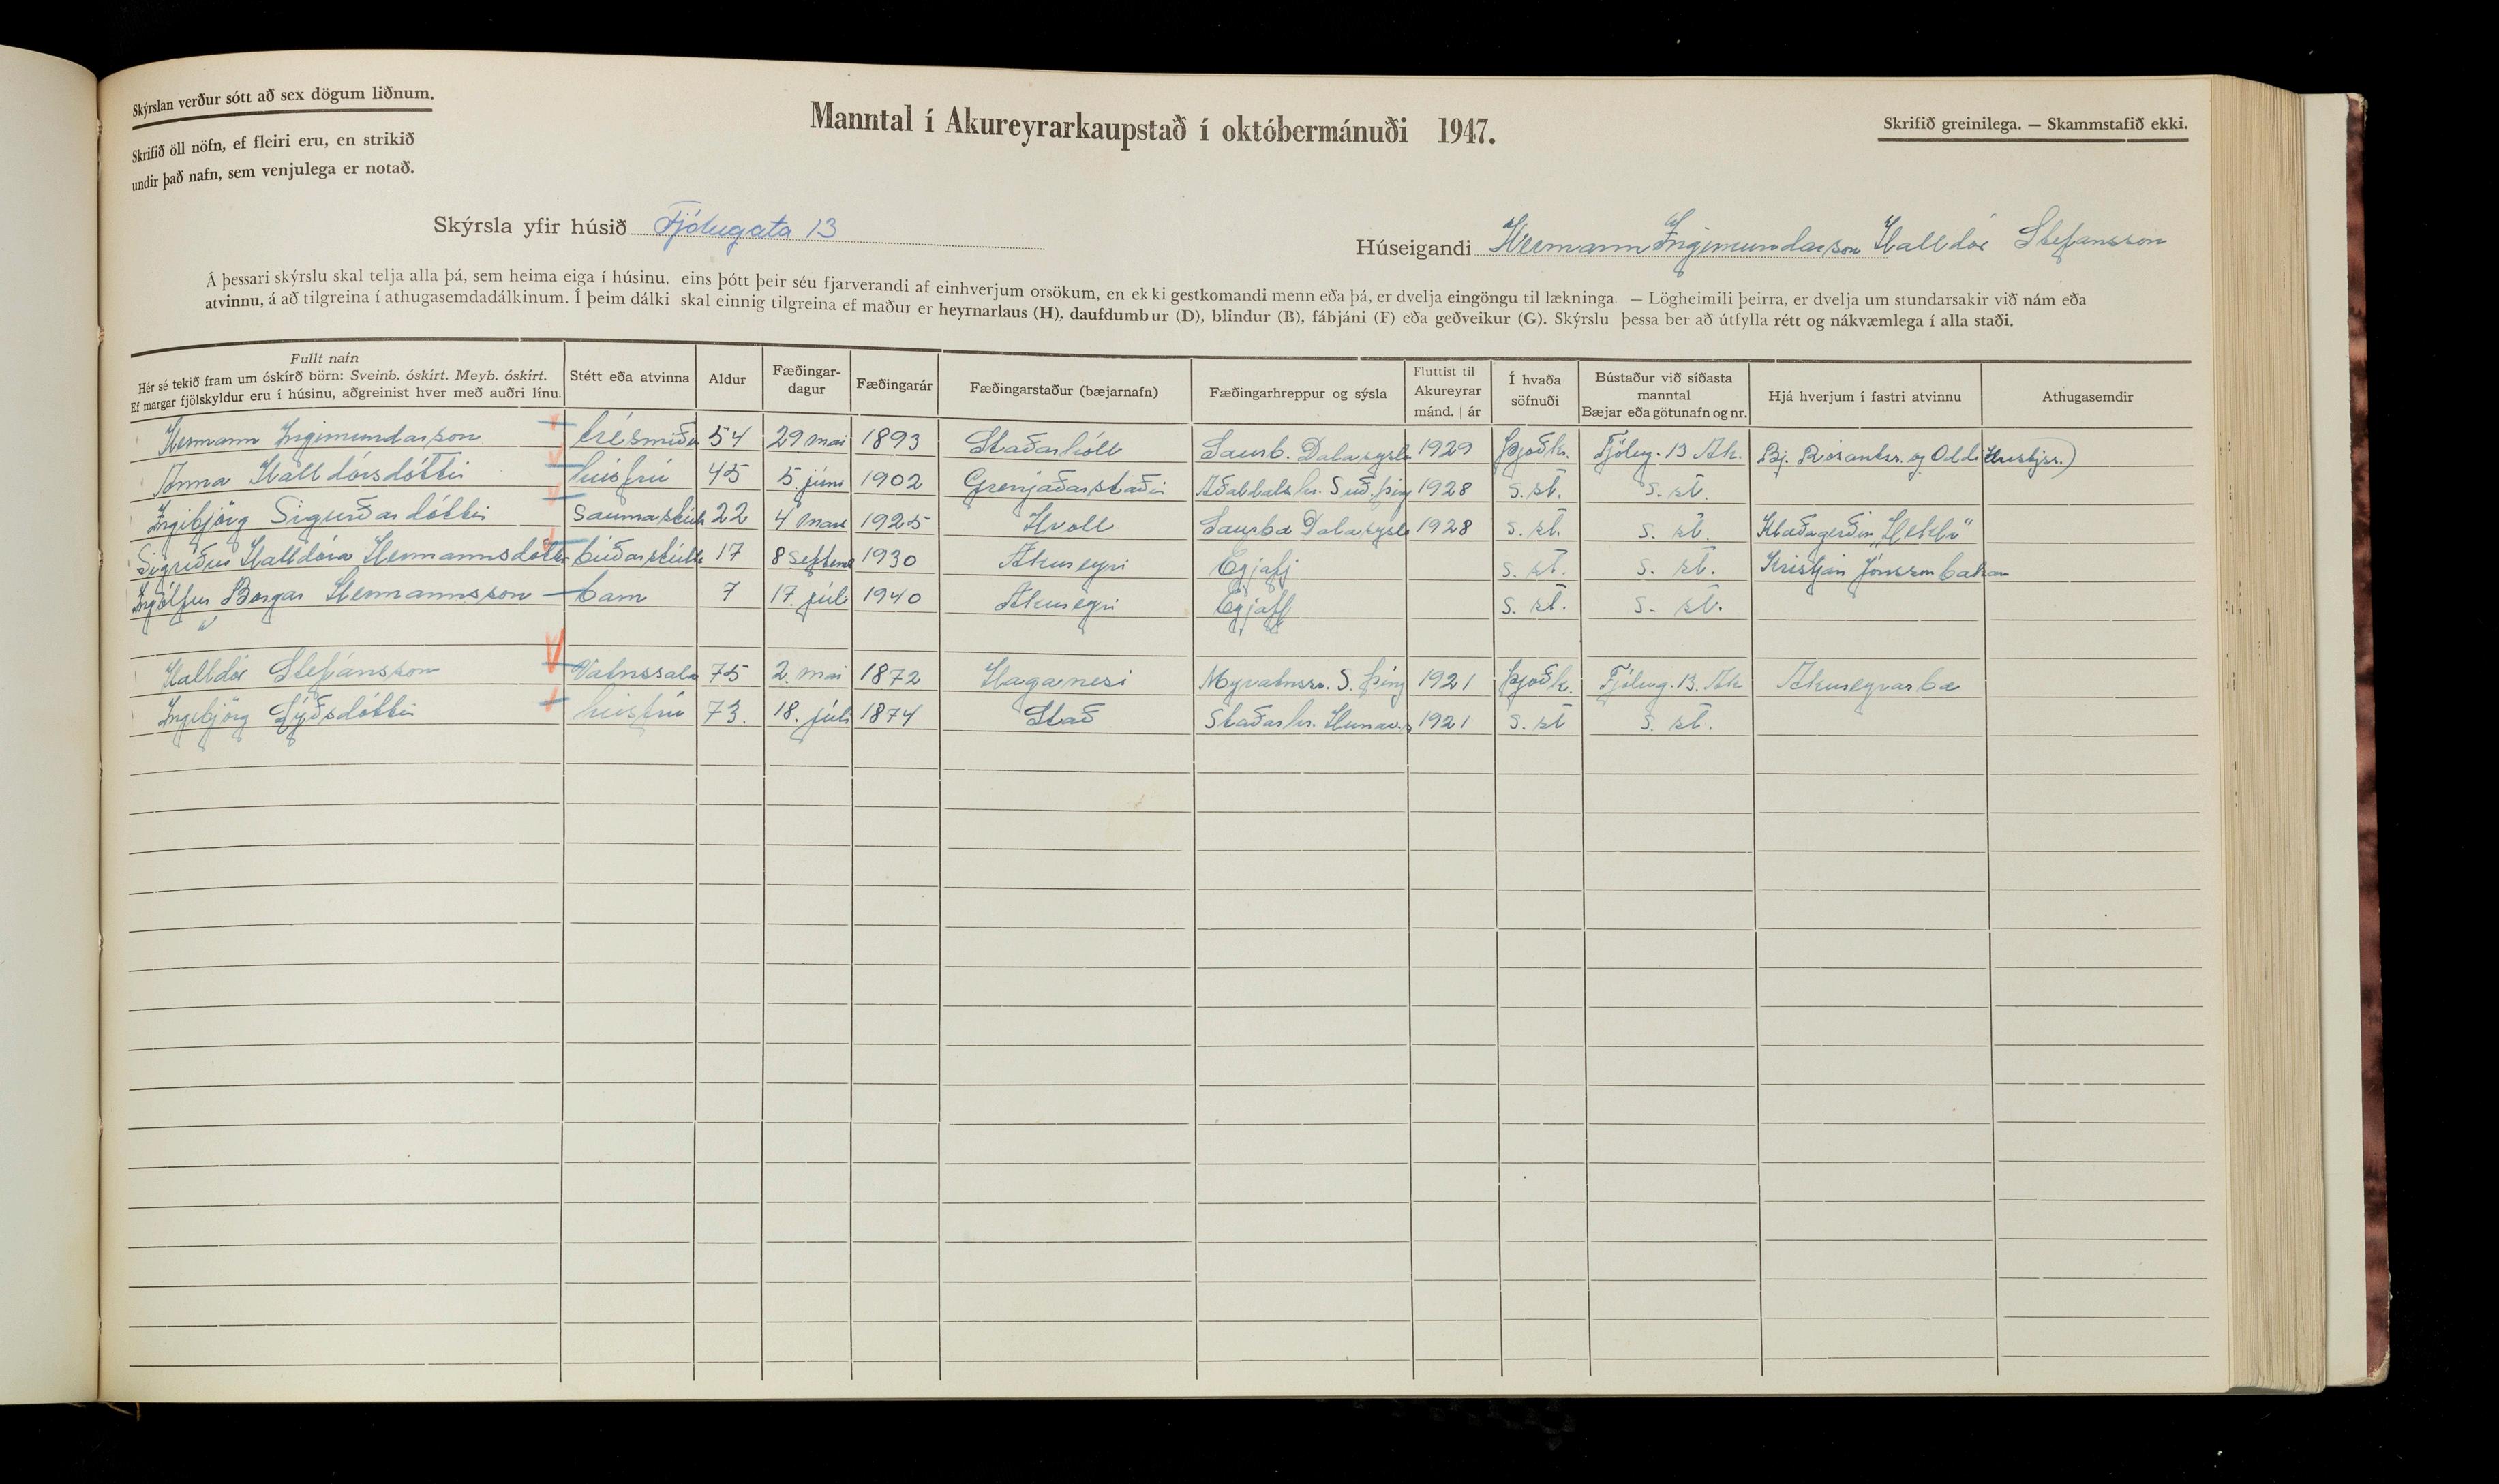 Skýrslan verður sótt að sex dögum liðnum.
Skrifið öll nöfn, ef fleiri eru, en strikið
undir það nafn, sem venjulega er notað.
Manntal í Akureyrarkaupstað í októbermánuði 1947.
Skrifið greinilega. — Skammstafið ekki.
Skýrsla yfir húsið Fjólugata 13
Húseigandi Hermann Ingimundarson Halldór Stefánsson
Á þessari skýrslu skal telja alla þá, sem heima eiga í húsinu, eins þótt þeir séu fjarverandi af einhverjum orsökum, en ekki gestkomandi menn eða þá, er dvelja eingöngu til lækninga. — Lögheimili þeirra, er dvelja um stundarsakir við nám eða
atvinnu, á að tilgreina í athugasemdadálkinum. Í þeim dálki skal einnig tilgreina ef maður er heyrnarlaus (H), daufdumbur (D), blindur (B), fábjáni (F) eða geðveikur (G). Skýrslu þessa ber að útfylla rétt og nákvæmlega í alla staði.
Fullt nafn
Hér sé tekið fram um óskírð börn: Sveinb. óskírt. Meyb. óskírt.
Ef margar fjölskyldur eru í húsinu, aðgreinist hver með auðri línu.
Stétt eða atvinna
Aldur
Fæðingar-
dagur
Fæðingarár
Fæðingarstaður (bæjarnafn)
Fæðingarhreppur og sýsla
Fluttist til
Akureyrar
mánd. | ár
Í hvaða
söfnuði
Bústaður við síðasta
manntal
Bæjar eða götunafn og nr.
Hjá hverjum í fastri atvinnu
Athugasemdir
Hermann Ingimundarson trésmiður 54 29 mai 1893 Staðarhóll Saurb. Dalasýsla 1929 Þjóðk. Fjólug. 13 Ak. Bj. Rósantss. og Oddi
Anna Halldórsdóttir húsfrú 45 5. júni 1902 Grenjaðarstaðir Aðaldals hr. Suð. Þing 1928 s. st. s. st.
Ingibjörg Sigurðardóttir Saumastúlk 22 4 mars 1925 Hvoll Saurbæ Dalasýsla 1928 s. st. s. st. Klæðagerðin „Hekla"
Sigríður Halldóra Hermannsdóttir búðarstúlk 17 8 septem 1930 Akureyri Eyjafj. s. st. s. st. Kristján Jónsson bakari
Ingólfur Borgar Hermannsson barn 7 17. júlí 1940 Akureyri Eyjafj s. st. s. st.
Halldór Stefánsson Vatnssala 75 2. mai 1872 Haganesi Myvatnssv. S. Þing 1921 Þjoðk. Fjólug. 13. Ak Akureyrarbæ
Ingibjörg Lýðsdóttir húsfrú 73. 18. júlí 1874 Stað Staðarhr. Hunav.s 1921 s. st s. st.